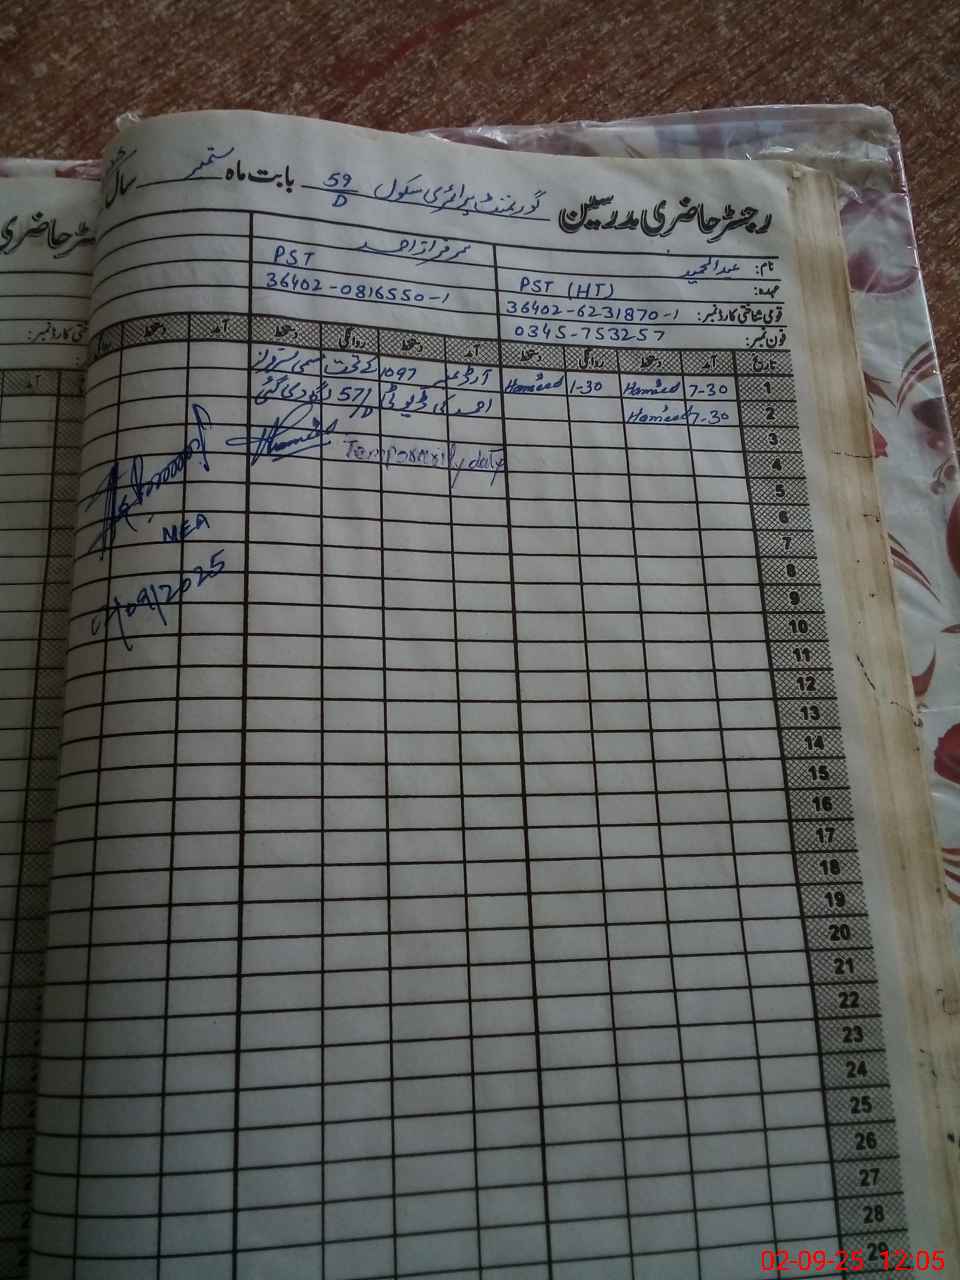 رجسٹر حاضری مدرسین گورنمنٹ پرائمری سکول 59/D بابت ماہ ستمبر سال
نام: عبدالحمید
سرفراز احمد
عہدہ: PST (HT)
PST
قومی شناختی کارڈ نمبر: 36402-6231870-1
36402-0816550-1
فون نمبر: 0345-753257
تاریخ آمد دستخط روانگی دستخط آمد دستخط روانگی دستخط آمد دستخط
1 7-30 Hameed 1-30 Hameed آرڈر نمبر 1097 کے تحت مسمی سرفراز
2 7-30 Hameed احمد کی ڈیوٹی 57/D لگا دی گئی
3 Hameed
4 Temporarily duty
5
6
MEA
7
8
02/09/2025
9
10
11
12
13
14
15
16
17
18
19
20
21
22
23
24
25
26
27
28
29
02-09-25 12:05